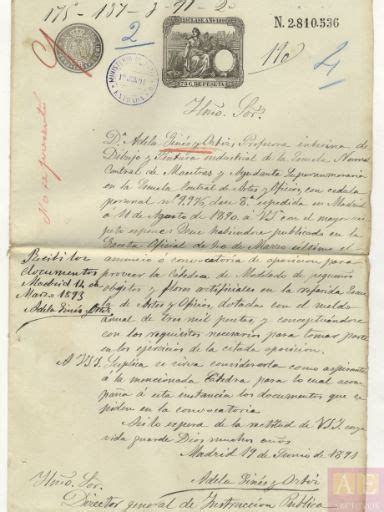 175-187-3-91-2
N. 2.810.536
2
4
No se presentó
Ilmo. Sor.
Dª Adela Ginés y Ortiz, Profesora interina de
Dibujo y Pintura industrial de la Escuela Normal
Central de Maestras y Ayudante Supernumeraria
en la Escuela Central de Artes y Oficios, con cédula
personal nº 9976, clase 8ª expedida en Madrid
a 11 de Agosto de 1890, a VSI con el mayor res-
peto expone: Que habiéndose publicado en la
Gaceta Oficial de de Marzo último el
anuncio ó convocatoria de oposición para
proveer la Cátedra de Modelado de pequeños
objetos y flores artificiales en la referida Escue-
la de Artes y Oficios, dotada con el sueldo
anual de tres mil pesetas y conceptuándose
con los requisitos necesarios para tomar parte
en los ejercicios de la citada oposición.
A VSI Suplica se sirva considerarla como aspirante
á la mencionada Cátedra para lo cual acom-
paña á esta instancia los documentos que se
piden en la convocatoria.
Así lo espera de la rectitud de VSI cuya
vida guarde Dios muchos años.
Madrid 19 de Junio de 1891
Adela Ginés y Ortiz
Ilmo. Sor. Director general de Instrucción Pública
Recibí los
documentos
Madrid 14 de
Marzo 1893
Adela Ginés Ortiz
AE
ARCHIVOS